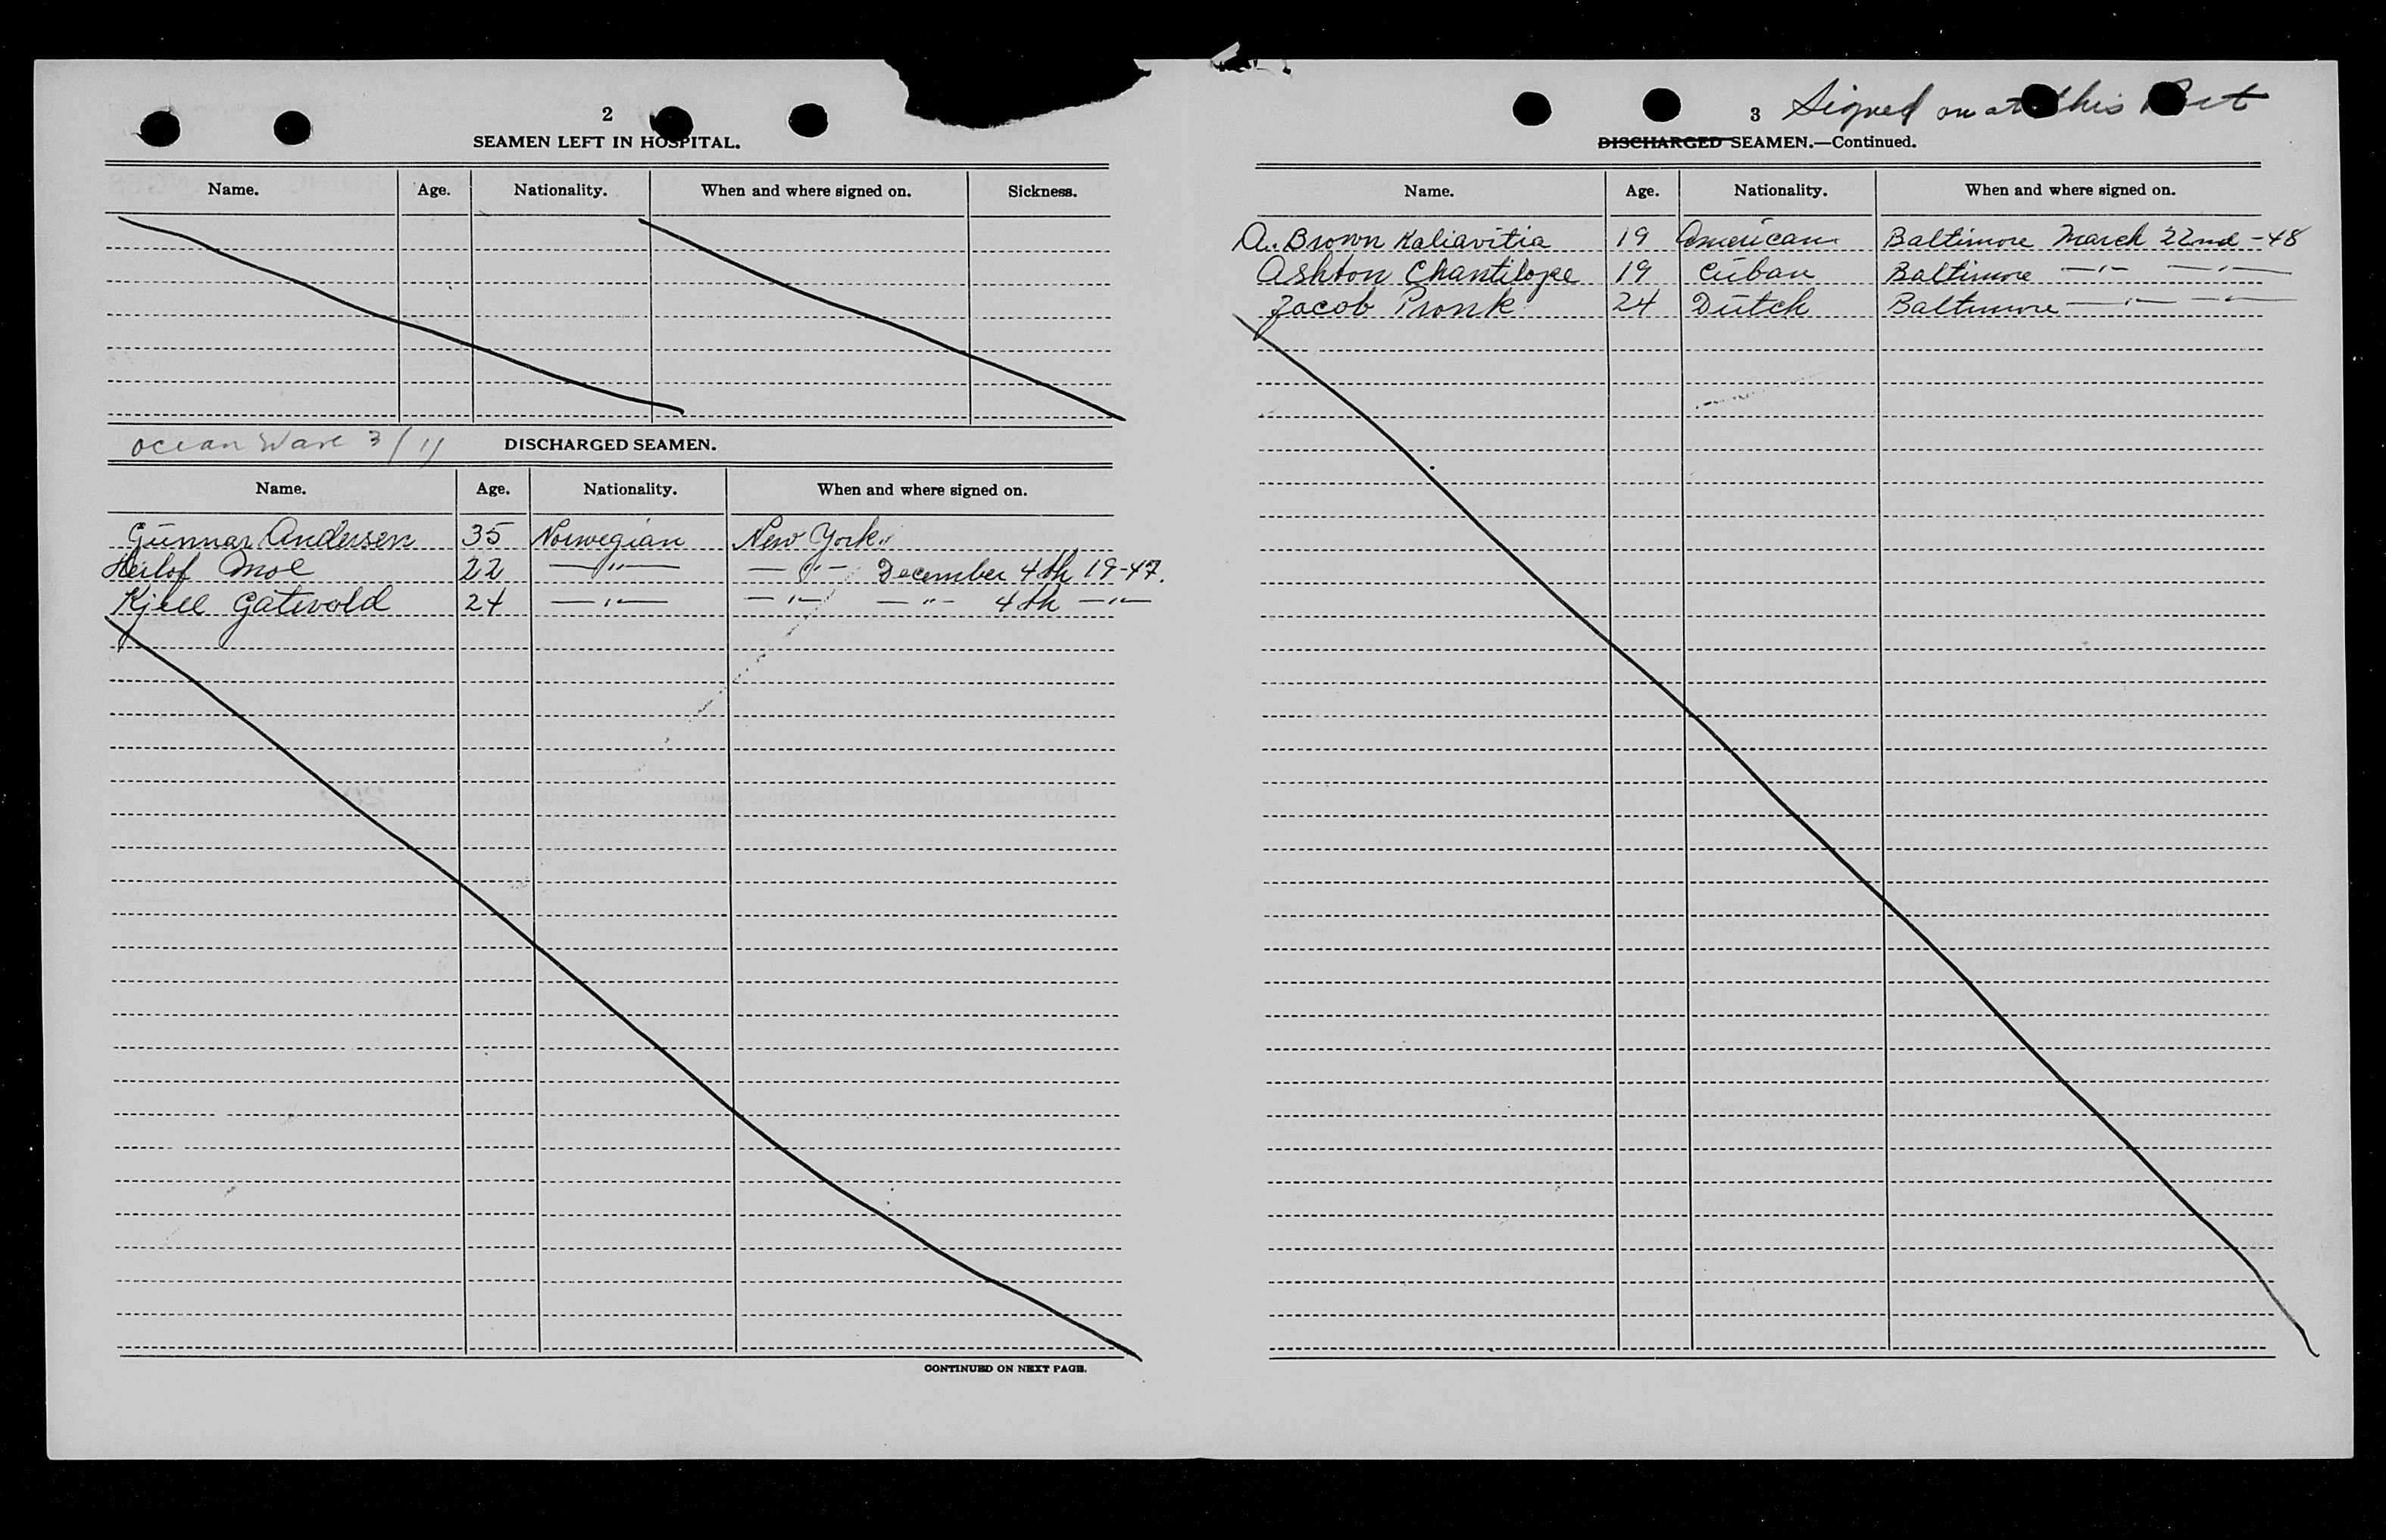 2
SEAMEN LEFT IN HOSPITAL.
Name. Age. Nationality. When and where signed on. Sickness.
Ocean Wave 3/11
DISCHARGED SEAMEN.
Name. Age. Nationality. When and where signed on.
Gunnar Andersen 35 Norwegian New York "
Herlof Moe 22 —"— —"— December 4th 19-47.
Kjell Gatevold 24 —"— —"— —"— 4th —"—
CONTINUED ON NEXT PAGE.
3 Signed on at this Port
DISCHARGED SEAMEN.—Continued.
Name. Age. Nationality. When and where signed on.
A. Brown Kaliavitia 19 American Baltimore March 22nd -48
Ashton Chantilope 19 Cuban Baltimore —"— —"—
Jacob Pronk 24 Dutch Baltimore —"— —"—